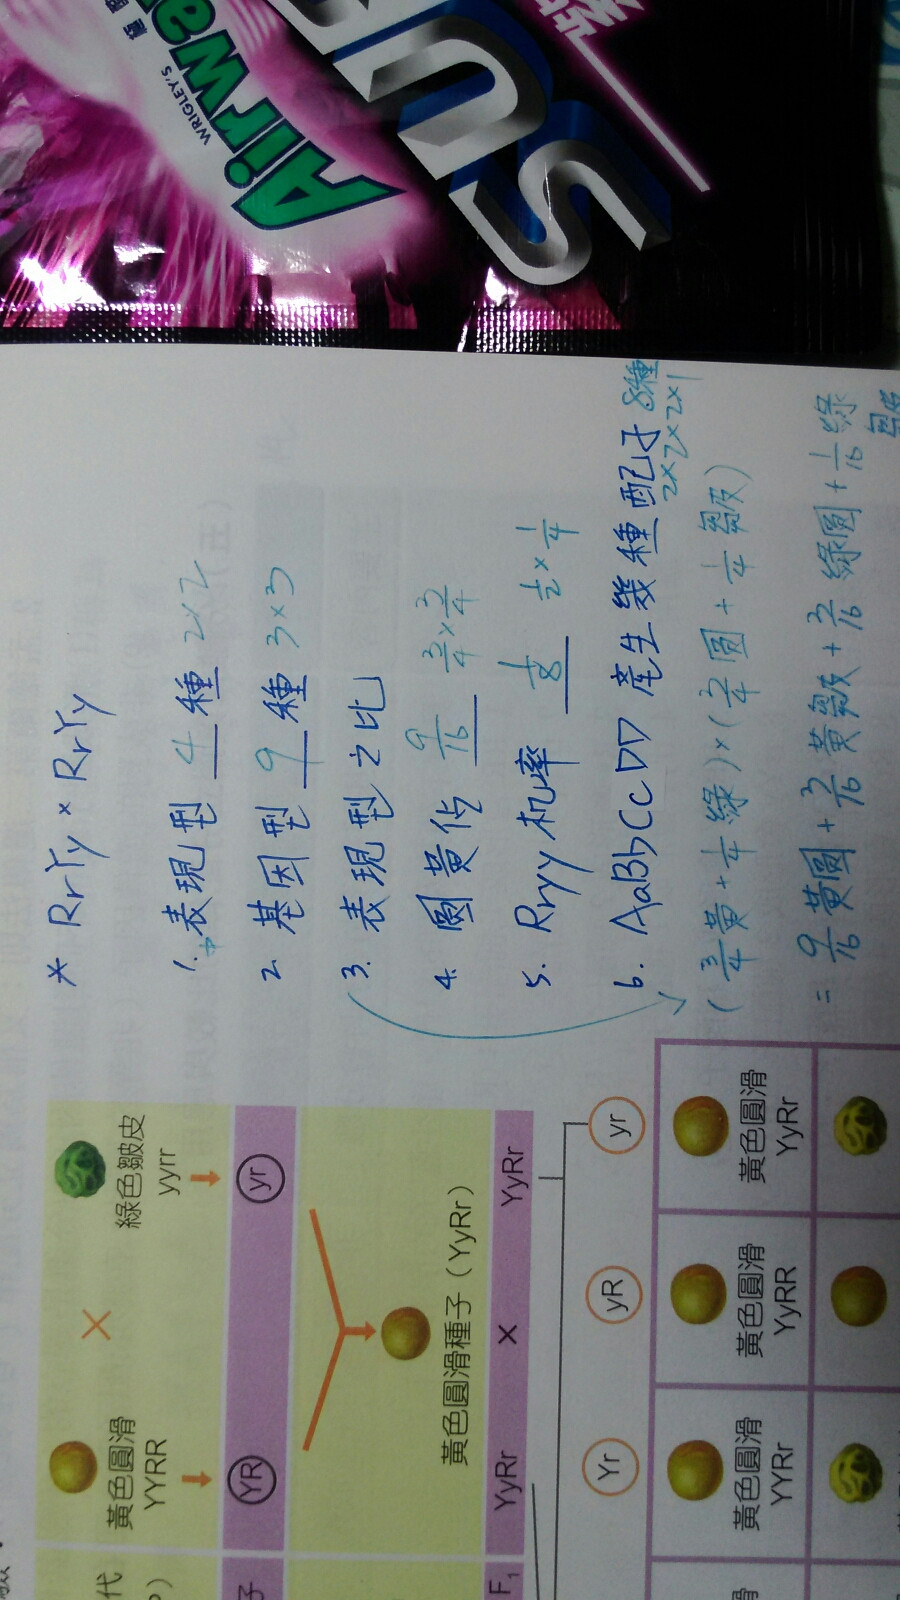 WRIGLEY'S
Airwa
SU
* RrYy × RrYy
1. 表現型 4 種 2×2
2. 基因型 9 種 3×3
3. 表現型之比
4. 圓黃佔 9/16 3/4×3/4
5. Rryy机率 1/8 1/2×1/4
6. AaBbCcDD 產生幾種配子 8種
2×2×2×1
(3/4黃+1/4綠)×(3/4圓+1/4皺)
= 9/16黃圓+3/16黃皺+3/16綠圓+1/16綠皺
代
P)
黃色圓滑
YYRR
×
綠色皺皮
yyrr
子
YR
yr
黃色圓滑種子(YyRr)
F₁
YyRr
×
YyRr
Yr
yR
yr
滑
黃色圓滑
YYRr
黃色圓滑
YyRR
黃色圓滑
YyRr